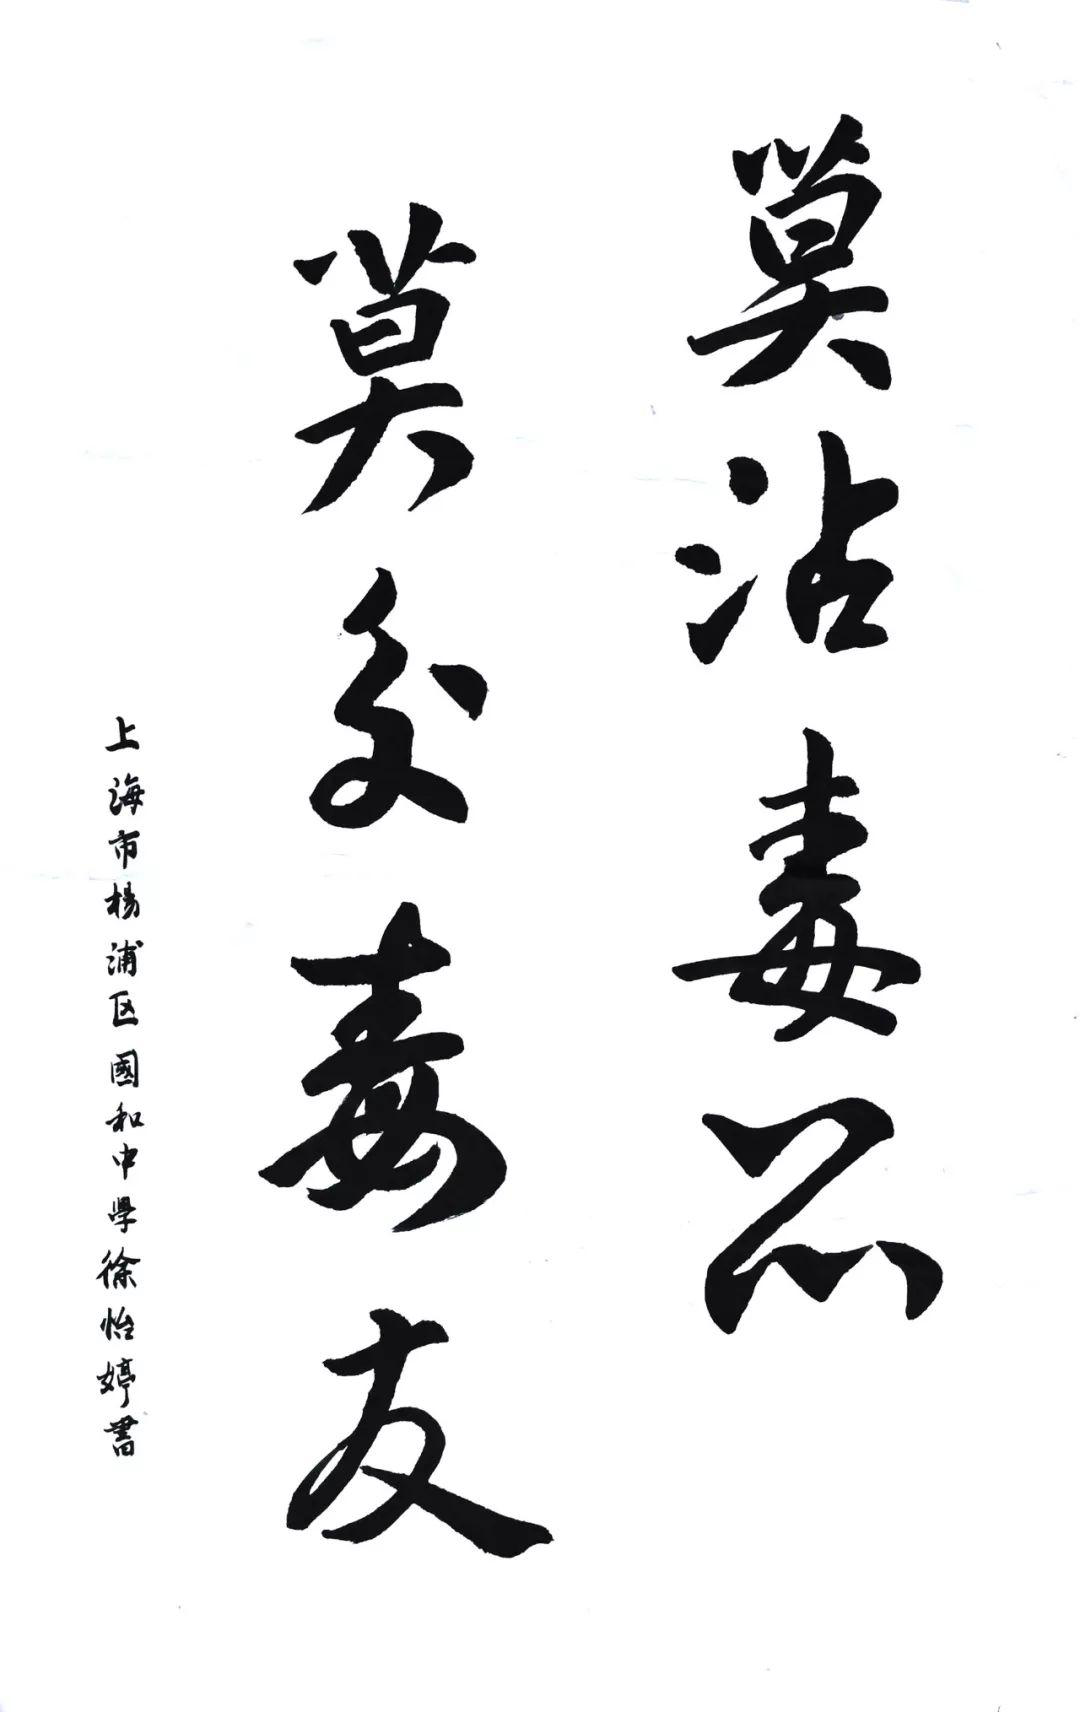 莫沾毒品
莫交毒友
上海市楊浦区國和中學徐怡婷書